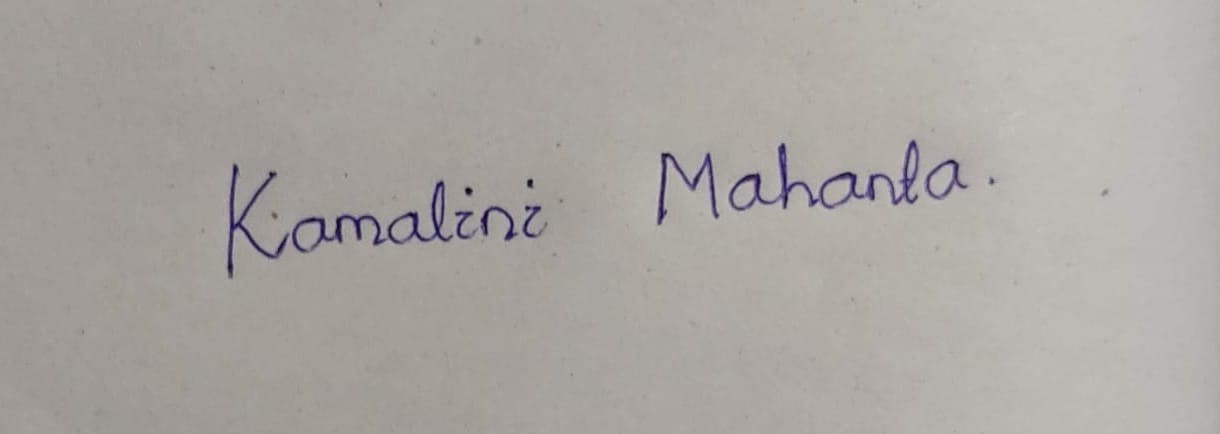 Kamalini Mahanta.